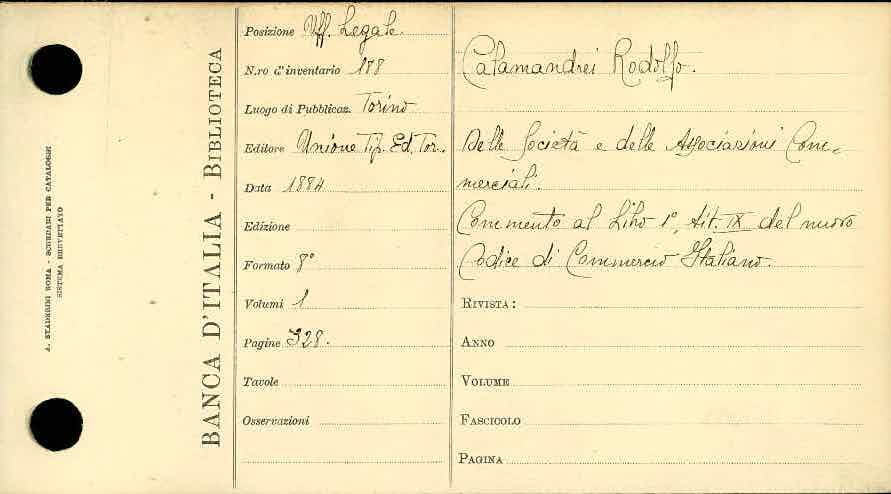 A. STADERINI ROMA - SCHEDARI PER CATALOGHI
SISTEMA BREVETTATO
BANCA D'ITALIA - BIBLIOTECA
Posizione Uff. Legale.
N.ro d'inventario 178
Luogo di Pubblicaz. Torino
Editore Unione Tip. Ed. Tor.
Data 1884
Edizione
Formato 8°
Volumi 1
Pagine 328.
Tavole
Osservazioni
Calamandrei Rodolfo.
Delle Società e delle Associazioni Com-
merciali.
Commento al Libro 1°, Tit. IX del nuovo
Codice di Commercio Italiano.
RIVISTA:
ANNO
VOLUME
FASCICOLO
PAGINA